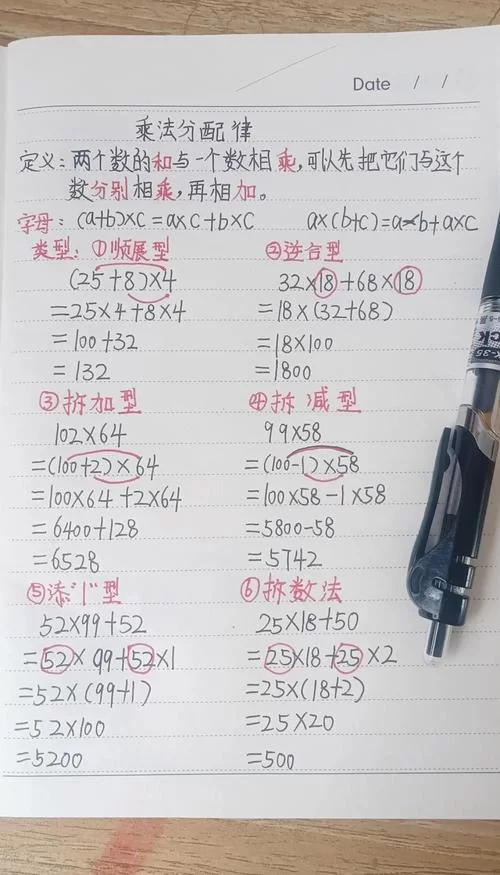 Date / /
乘法分配律
定义:两个数的和与一个数相乘,可以先把它们与这个
数分别相乘,再相加。
字母:(a+b)×c=a×c+b×c a×(b+c)=a×b+a×c
类型:①顺展型
(25+8)×4
=25×4+8×4
=100+32
=132
②逆合型
32×18+68×18
=18×(32+68)
=18×100
=1800
③拆加型
102×64
=(100+2)×64
=100×64+2×64
=6400+128
=6528
④拆减型
99×58
=(100-1)×58
=100×58-1×58
=5800-58
=5742
⑤添"1"型
52×99+52
=52×99+52×1
=52×(99+1)
=52×100
=5200
⑥拆数法
25×18+50
=25×18+25×2
=25×(18+2)
=25×20
=500